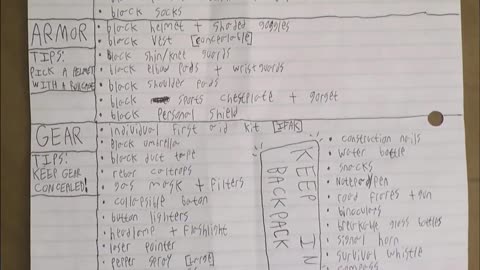 • black socks
ARMOR
TIPS:
PICK A HELMET
WITH A
• black helmet + shaded goggles
• black vest [concealable]
• black shin/knee guards
• black elbow pads + wristguards
• black shoulder pads
• black sports chestplate + gorget
• black personal shield
GEAR
TIPS:
KEEP GEAR
CONCEALED!
• individual first aid kit [IFAK]
• black umbrella
• black duct tape
• rebar caltrops
• gas mask + filters
• collapsible baton
• button lighters
• headlamp + flashlight
• laser pointer
• pepper spray
KEEP IN
BACKPACK
• construction nails
• water bottle
• snacks
• notepad/pen
• road flares + gun
• binoculars
• breakable glass bottles
• signal horn
• survival whistle
• compass